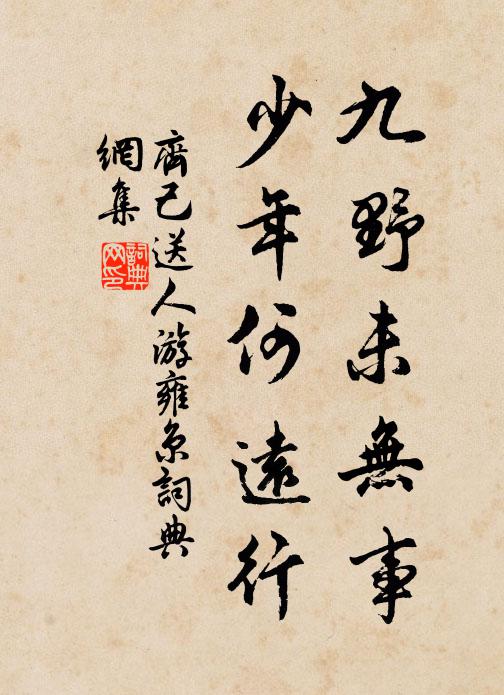 九野未無事
少年何遠行
齊己送人游雍京詞典
網集
詞典
网印